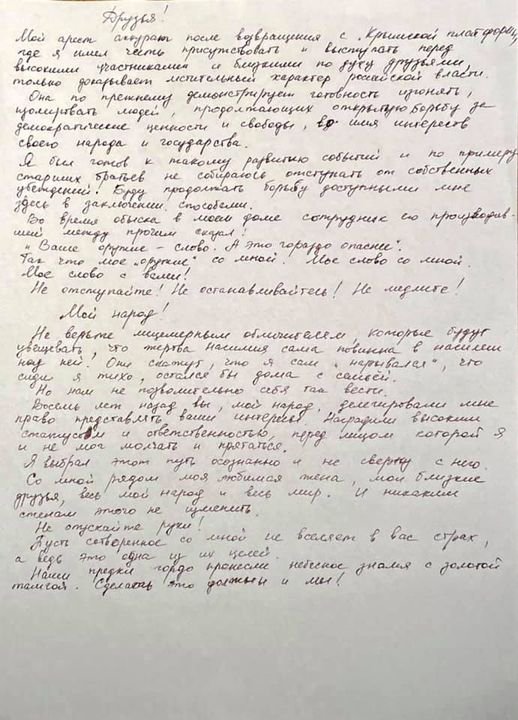 Друзья!
Мой арест аккурат после возвращения с „Крымской платформы,
где я имел честь присутствовать и выступать перед
высокими участниками и близкими по духу друзьями,
только доказывает мстительный характер российской власти.
Она по прежнему демонстрирует готовность изгонять,
изолировать людей, продолжающих открытую борьбу за
демократические ценности и свободы, во имя интересов
своего народа и государства.
Я был готов к такому развитию событий и по примеру
старших братьев не собираюсь отступать от собственных
убеждений. Буду продолжать борьбу доступными мне
здесь в заключении способами.
Во время обыска в моем доме сотрудник его производив-
ший между прочим сказал:
„Ваше оружие – слово. А это гораздо опаснее".
Так что мое „оружие" со мной. Мое слово со мной.
Мое слово с вами!
Не отступайте! Не останавливайтесь! Не медлите!
Мой народ!
Не верьте лицемерным обличителям которые будут
увещевать, что жертва насилия сама повинна в насилии
над ней. Они скажут, что я сам „нарывался", что
сиди я тихо, остался бы дома с семьей.
Но нам не позволительно себя так вести.
Восемь лет назад вы, мой народ, делегировали мне
право представлять ваши интересы. Наградили высоким
статусом и ответственностью, перед лицом которой я
и не мог молчать и прятаться.
Я выбрал этот путь осознанно и не сверну с него.
Со мной рядом моя любимая жена, мои близкие
друзья, весь мой народ и весь мир. И никаким
стенам этого не изменить.
Не опускайте руки!
Пусть сотворенное со мной не вселяет в вас страх,
а ведь это одна из их целей.
Наши предки гордо пронесли небесное знамя с золотой
тамгой. Сделать это должны и мы!